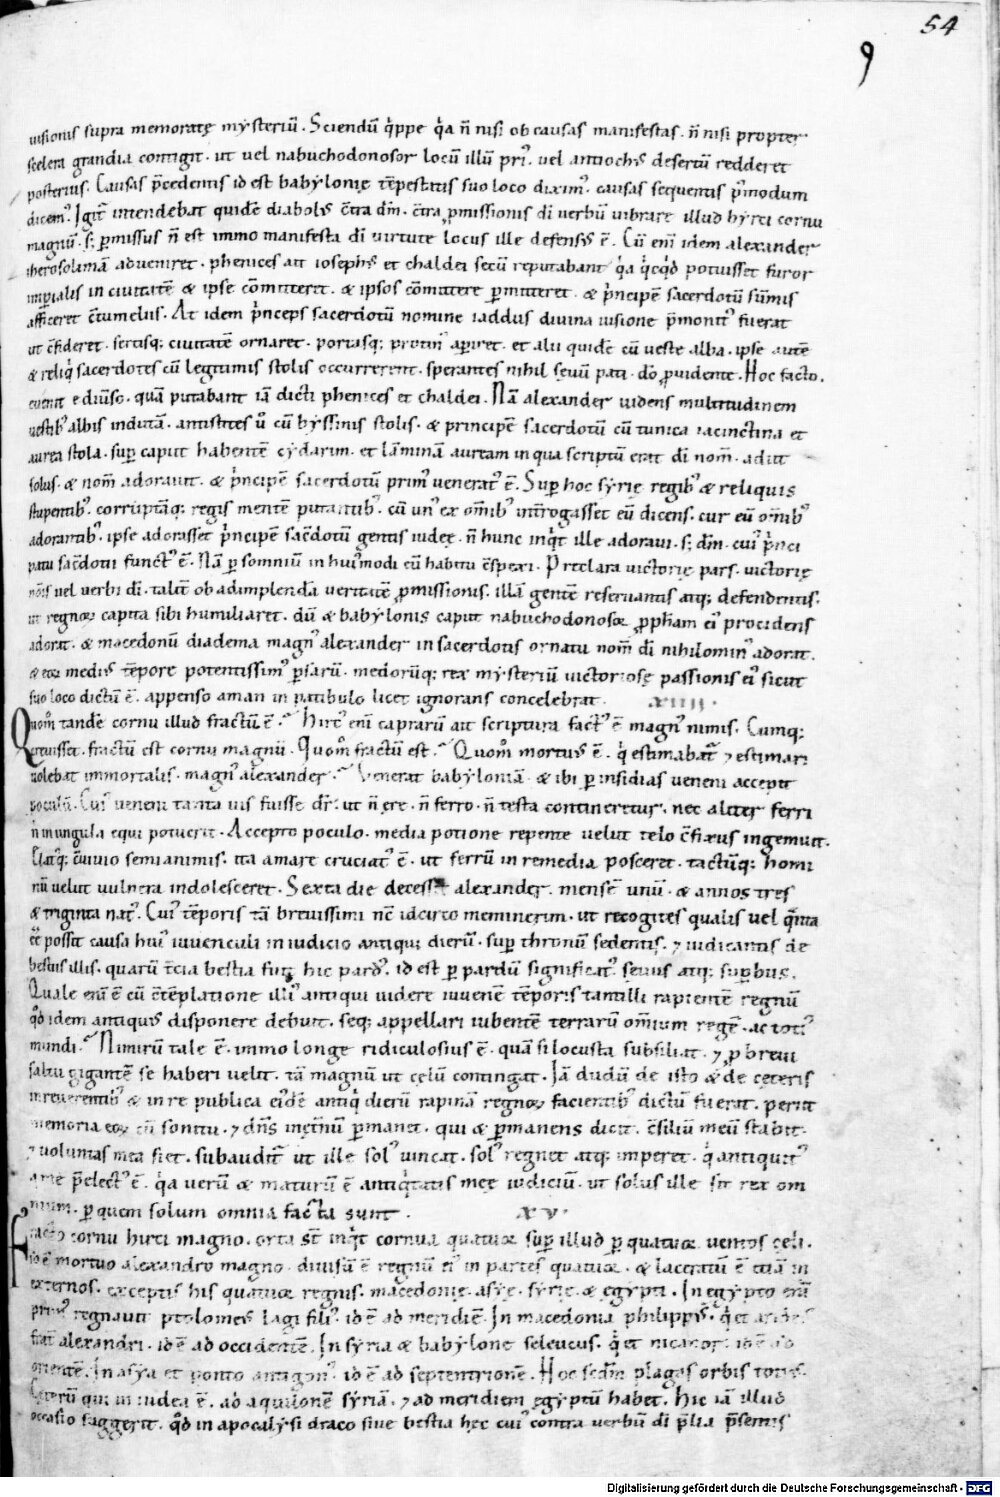 54
9
uisionis supra memoratę mysteriū. Sciendū q̓ppe q̓a n̄ nisi ob causas manifestas. n̄ nisi propter
scelera grandia contigit. ut uel nabuchodonosor locū illū pri᷒. uel antioch᷒ desertū redderet
posterius. Causas p̄cedentis id est babylonię tēpestatis suo loco dixim᷒. causas sequentis p̓modum
dicem᷒. Igit᷒ intendebat quidē diabol᷒ c̄tra dm̄. c̄tra ꝓmissionis di uerbū uibrare illud hyrci cornu
magnū. s; pmissus n̄ est immo manifesta di uirtute locus ille defens᷒ ē. Cū em̄ idem alexander
iherosolimā adueniret. phenices ait ioseph᷒ et chaldei secū reputabant q̓a q̓cq̓d potuisset furor
imperialis in ciuitatē & ipse cōmitteret. & ipsos cōmittere pmitteret. & p̓ncipē sacerdotū sūmis
afficeret c̄tumeliis. At idem p̓nceps sacerdotū nomine iaddus diuina uisione p̄monit᷒ fuerat
ut c̄fideret. sertisq; ciuitatē ornaret. portasq; protin᷒ apiret. et alii quidē cū ueste alba. ipse autē
& reliq̓ sacerdotes cū legitimis stolis occurrerent. sperantes nihil sęuū pati. dō ꝓuidente. Hoc facto.
euenit e diūso. quā putabant iā dicti phenices et chaldei. Nā alexander uidens multitudinem
uestib᷒ albis indutā. antistites u̓ cū byssinis stolis. & principē sacerdotū cū tunica iacinctina et
aurea stola. sup caput habentē cydarim. et lāminā auream in qua scriptū erat di nom̄. adiit
solus. & nom̄ adorauit. & p̓ncipē sacerdotū prim᷒ uenerat᷒ ē. Sup hoc syrię regib᷒ & reliquis
stupentib᷒. corruptāq; regis mentē putantib᷒. cū un᷒ ex om̄ib᷒ int̄rogasset eū dicens. cur eū om̄ib᷒
adorantib᷒. ipse adorasset p̓ncipē sac̄dotū gentis iudeę. n̄ hunc inq̓t ille adoraui. s; dm̄. cui᷒ p̓nci
patu sac̄dotii funct᷒ ē. Nā p somniū in hui᷒modi eū habitu c̄spexi. Preclara uictorię pars. uictorię
nōis uel uerbi di. talit̄ ob adimplendā ueritatē ꝓmissionis. illā gentē reseruantis atq; defendentis.
ut regnoꝝ capita sibi humiliaret. dū & babylonis caput nabuchodonosor ꝓph̄am ei᷒ procidens
adorat. & macedonū diadema magn᷒ alexander in sacerdotis ornatu nom̄ di nihilomin᷒ adorat.
& eoꝝ medi᷒ tēpore potentissim᷒ psarū. medorūq; rex mysteriū uictoriosę passionis ei᷒ sicut
suo loco dictū ē. appenso aman in patibulo licet ignorans concelebrat. XIIII.
Quom̄ tandē cornu illud fractū ē. Hirc᷒ em̄ caprarū ait scriptura fact᷒ ē magn᷒ nimis. Cumq;
creuisset. fractū est cornu magnū. Quom̄ fractū est. Quom̄ mortu᷒ ē. q̓ estimabat᷒ ⁊ estimari
uolebat immortalis. magn᷒ alexander. Venerat babyloniā. & ibi p insidias ueneni accepit
poculū. Cui᷒ ueneni tanta uis fuisse dr̄. ut n̄ ęre. n̄ ferro. n̄ testa contineretur. nec aliter ferri
n̄ in ungula equi potuerit. Accepto poculo. media potione repente uelut telo c̄fixus ingemuit.
Elatq; c̄uiuio semianimis. ita amare cruciat᷒ ē. ut ferrū in remedia posceret. tactūq; homi
nū uelut uulnera indolesceret. Sexta die decessit alexander. mensē unū. & annos tres
& triginta nat᷒. Cui᷒ tēporis tā breuissimi nc̄ idcirco meminerim. ut recogites qualis uel q̓nta
ēē possit causa hui᷒ iuuenculi in iudicio antiqui dierū. sup thronū sedentis. ⁊ iudicantis de
bestiis illis. quarū t̄cia bestia fuit hic pard᷒. id est p pardū significat᷒. sęuus atq; supbus.
Quale em̄ ē cū c̄tēplatione illi᷒ antiqui uidere iuuenē tēporis tantilli rapientē regnū
qd̓ idem antiquus disponere debuit. seq; appellari iubentē terrarū om̄ium regē. ac toti᷒
mundi. Nimirū tale ē. immo longe ridiculosius ē. quā si locusta subsiliat. ⁊ ꝓ breui
saltu gigantē se haberi uelit. tā magnū ut cęlū contingat. Iā dudū de isto & de ceteris
irreuerentib᷒ & in re publica ei᷒dē antiq̓ dierū rapinā regnoꝝ facientib᷒ dictū fuerat. periit
memoria eoꝝ cū sonitu. ⁊ dn̄s inęt̄nū pmanet. qui & pmanens dicit. c̄siliū meū stabit.
⁊ uoluntas mea fiet. subaudit̄ ut ille sol᷒ uincat. sol᷒ regnet atq; imperet. q̓ antiquit᷒
a me p̄elect᷒ ē. q̓a uerū & maturū ē antiq̓tatis meę iudiciū. ut solus ille sit rex om
nium. p quem solum omnia facta sunt. XV.
Fracto cornu hirci magno. orta st̄ inq̓t cornua quatuor sup illud p quatuor uentos cęli.
id ē mortuo alexandro magno. diuisū ē regnū ei᷒ in partes quatuor. & laceratū ē etiā in
externos. exceptis his quatuor regnis. macedonię. asyę. syrię. & egypti. In egypto em̄
prim᷒ regnauit ptolomeus lagi fili᷒. id ē ad meridiē. In macedonia philipp᷒. q̓ et arideus
frat̄ alexandri. id ē ad occidentē. In syria & babylone seleucus. q̓ et nicanor. id ē ad
orientē. In asya et ponto antigon᷒. id ē ad septentrionē. Hoc scd̄m plagas orbis toti᷒.
Ceterū qui in iudea ē. ad aquilonē syriā. ⁊ ad meridiem egyptū habet. Hic iā illud
occasio suggerit. qd̓ in apocalypsi draco siue bestia hęc cui᷒ contra uerbū di p̄lia p̄sentis
Digitalisierung gefördert durch die Deutsche Forschungsgemeinschaft - DFG